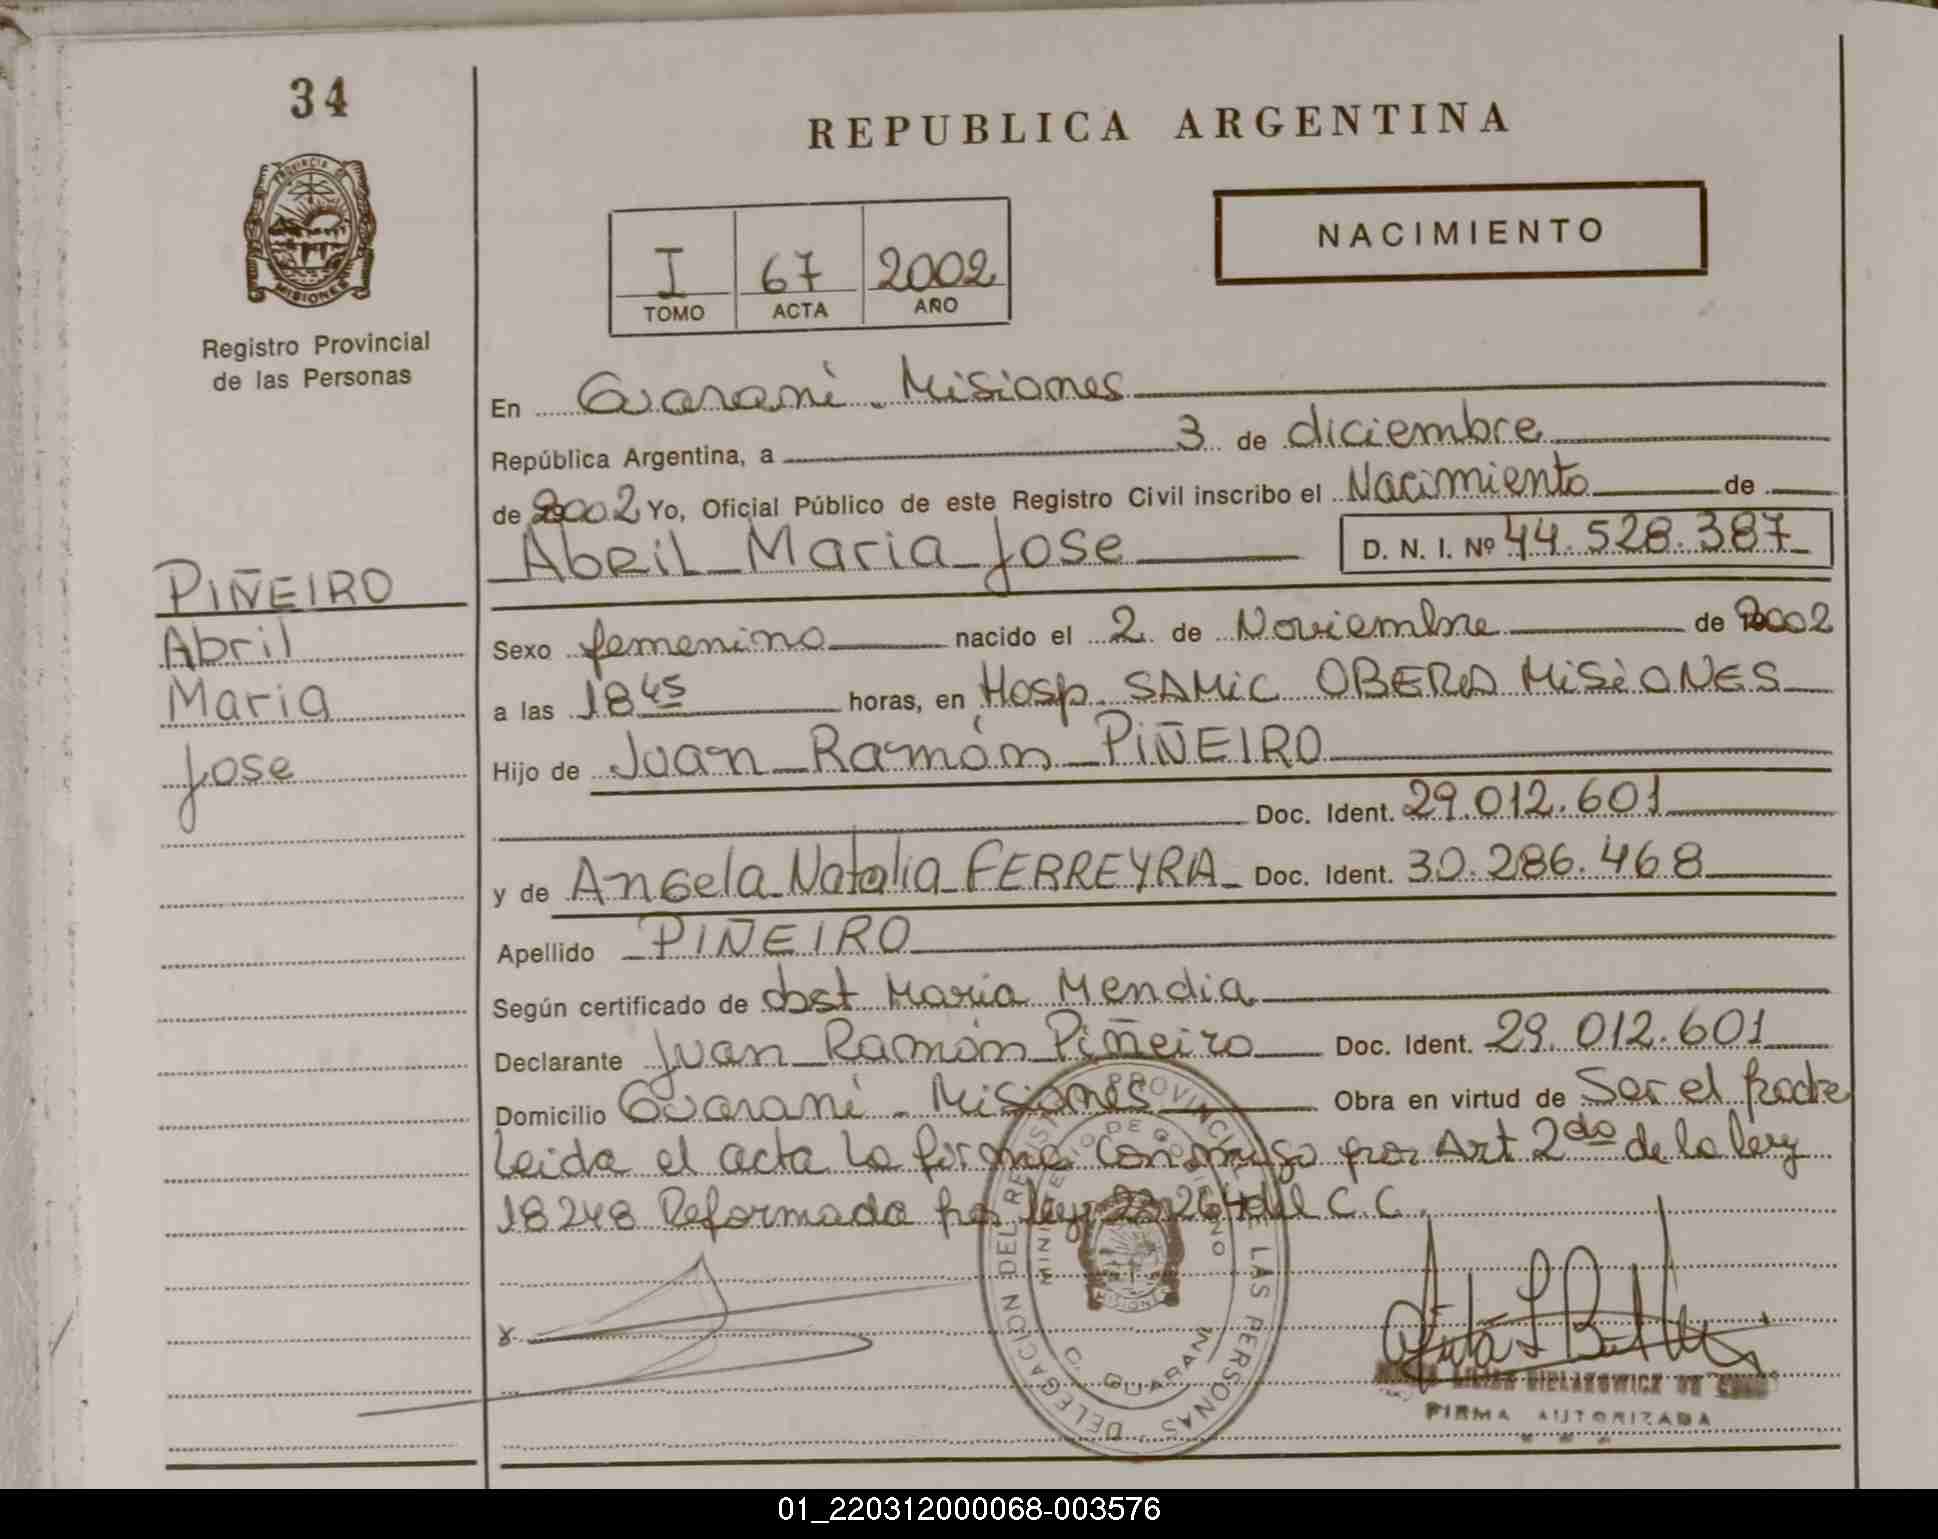 34
PROVINCIA DE
MISIONES
Registro Provincial
de las Personas
REPUBLICA ARGENTINA
NACIMIENTO
I 67 2002
TOMO ACTA AÑO
En Guaraní - Misiones
República Argentina, a 3 de diciembre
de 2002 Yo, Oficial Público de este Registro Civil inscribo el Nacimiento de
Abril Maria Jose D. N. I. Nº 44.528.387
PIÑEIRO
Abril
Maria
Jose
Sexo femenino nacido el 2 de Noviembre de 2002
a las 18 45 horas, en Hosp SAMIC OBERA MISIONES
Hijo de Juan Ramón PIÑEIRO
Doc. Ident. 29.012.601
y de Angela Natalia FERREYRA Doc. Ident. 30.286.468
Apellido PIÑEIRO
Según certificado de obst Maria Mendia
Declarante Juan Ramón Piñeiro Doc. Ident. 29.012.601
Domicilio Guaraní - Misiones Obra en virtud de Ser el padre
Leida el acta la firma conmigo por Art 2do de la ley
18248 Reformado por ley 23264 del C.C.
DELEGACION DEL REGISTRO PROVINCIAL DE LAS PERSONAS
MINISTERIO DE GOBIERNO
MISIONES
GUARANI
FIRMA AUTORIZADA
01_220312000068-003576